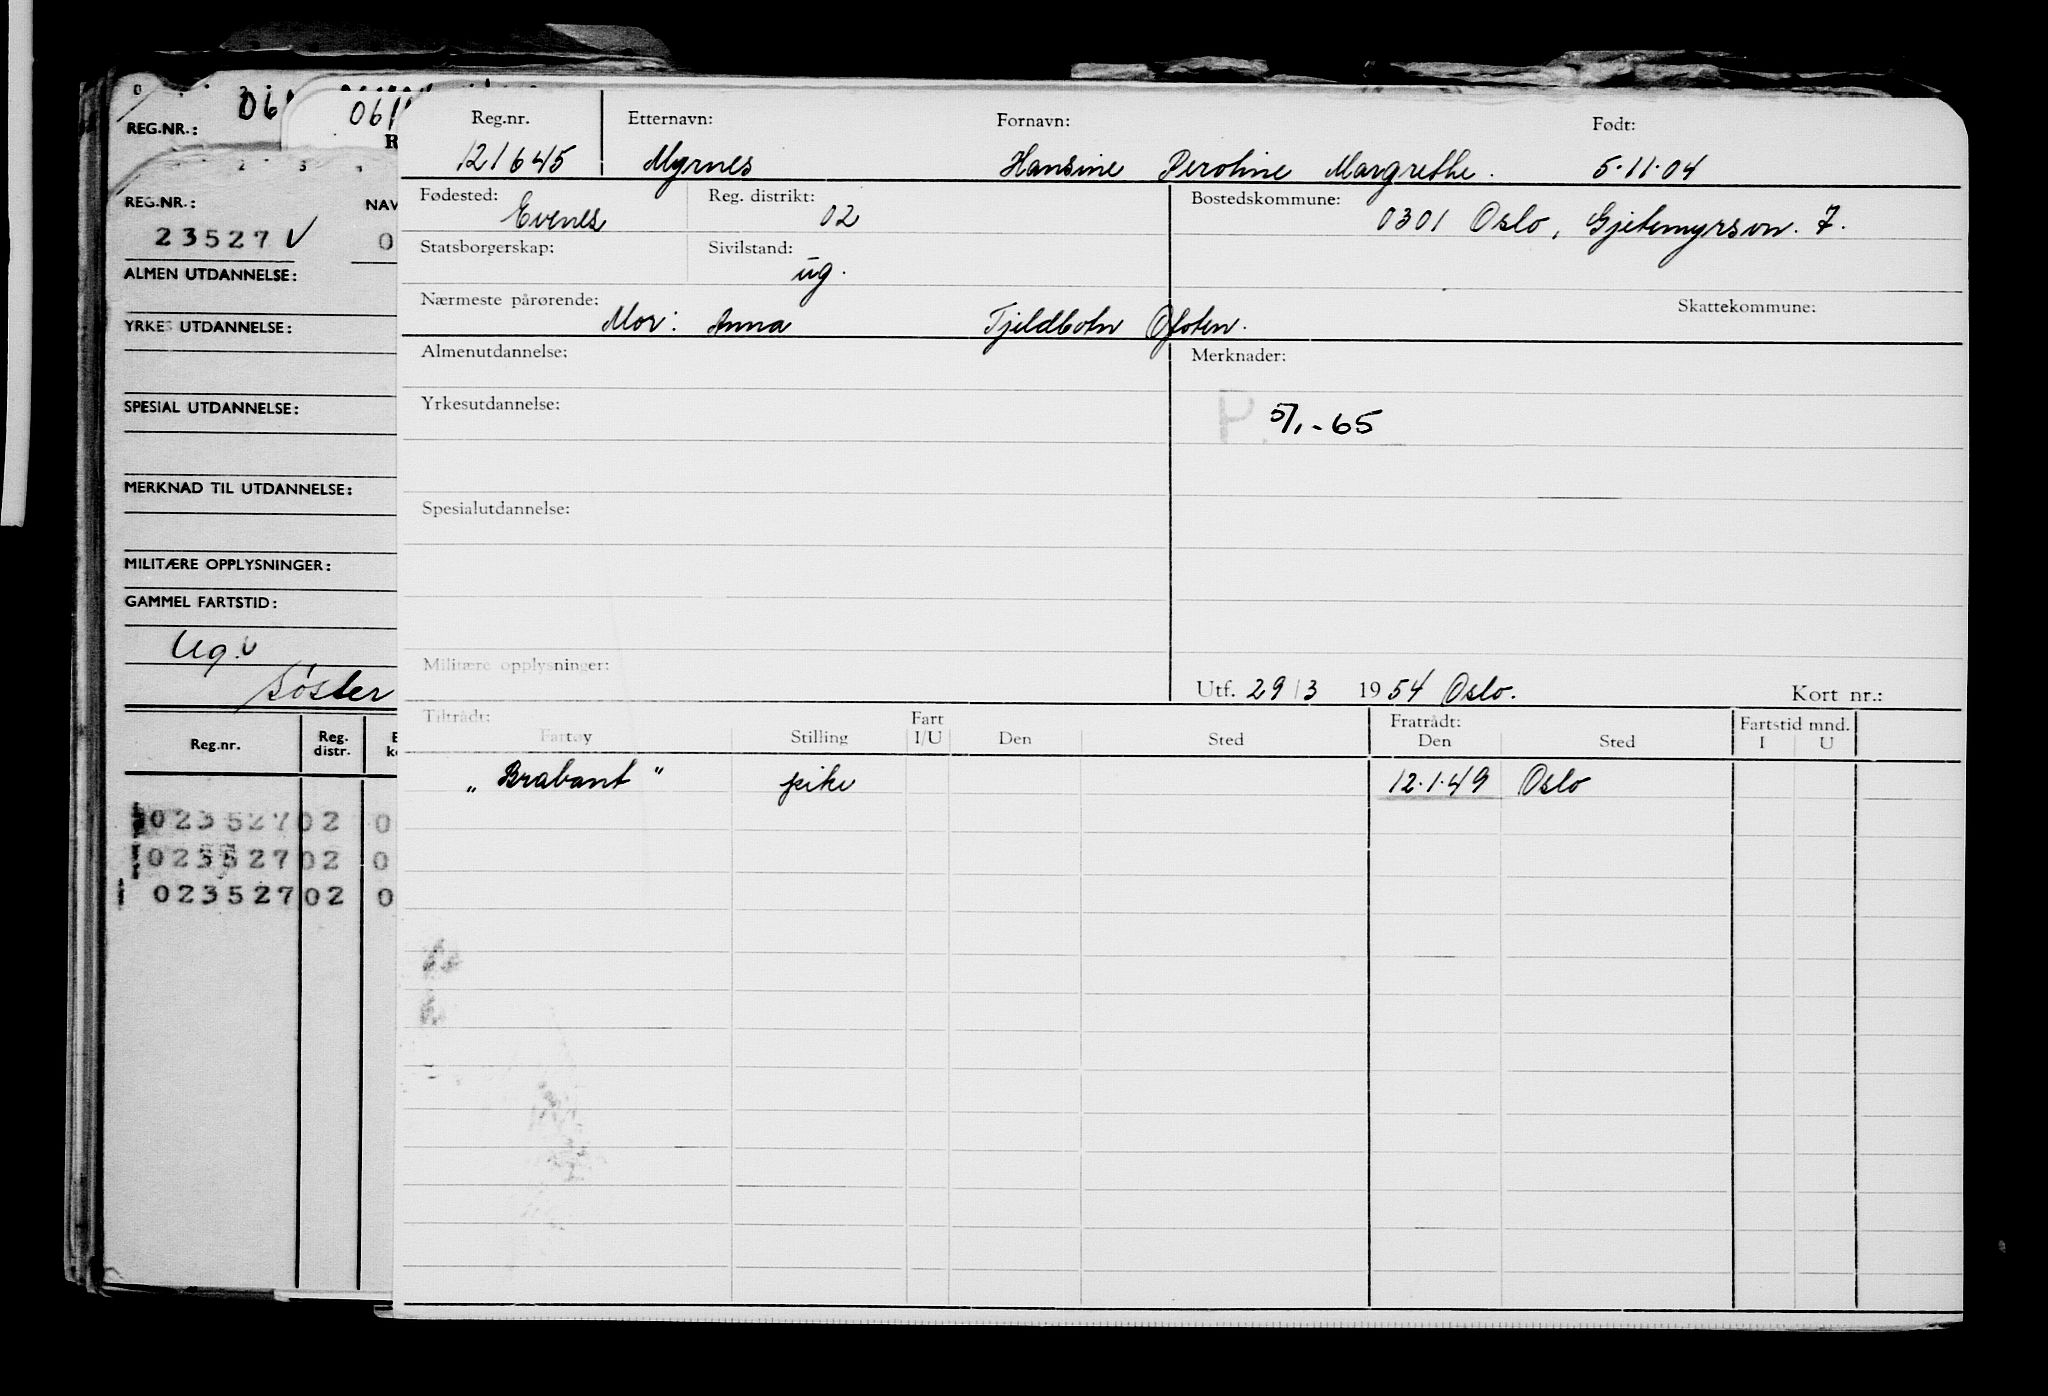 REG.NR.:
REG.NR.: NAV
23527 V 0
ALMEN UTDANNELSE:
YRKES UTDANNELSE:
SPESIAL UTDANNELSE:
MERKNAD TIL UTDANNELSE:
MILITÆRE OPPLYSNINGER:
GAMMEL FARTSTID:
Ug.
Søster
Reg.nr. Reg. distr.
023527 02 0
023527 02 0
023527 02 0
Reg.nr. Etternavn: Fornavn: Født:
121645 Myrnes Hansine Peroline Margrethe. 5.11.04
Fødested: Reg. distrikt: Bostedskommune:
Evenes 02 0301 Oslo, Gjetemyrsvn. 7.
Statsborgerskap: Sivilstand:
ug.
Nærmeste pårørende: Skattekommune:
Mor: Anna Tjeldbotn Ofoten.
Almenutdannelse: Merknader:
Yrkesutdannelse:
P. 5/1.-65
Spesialutdannelse:
Militære opplysninger:
Utf. 29/3 1954 Oslo. Kort nr.:
Tiltrådt: Fart Fratrådt: Fartstid mnd.
Fartøy Stilling I/U Den Sted Den Sted I U
„Brabant" pike 12.1.49 Oslo